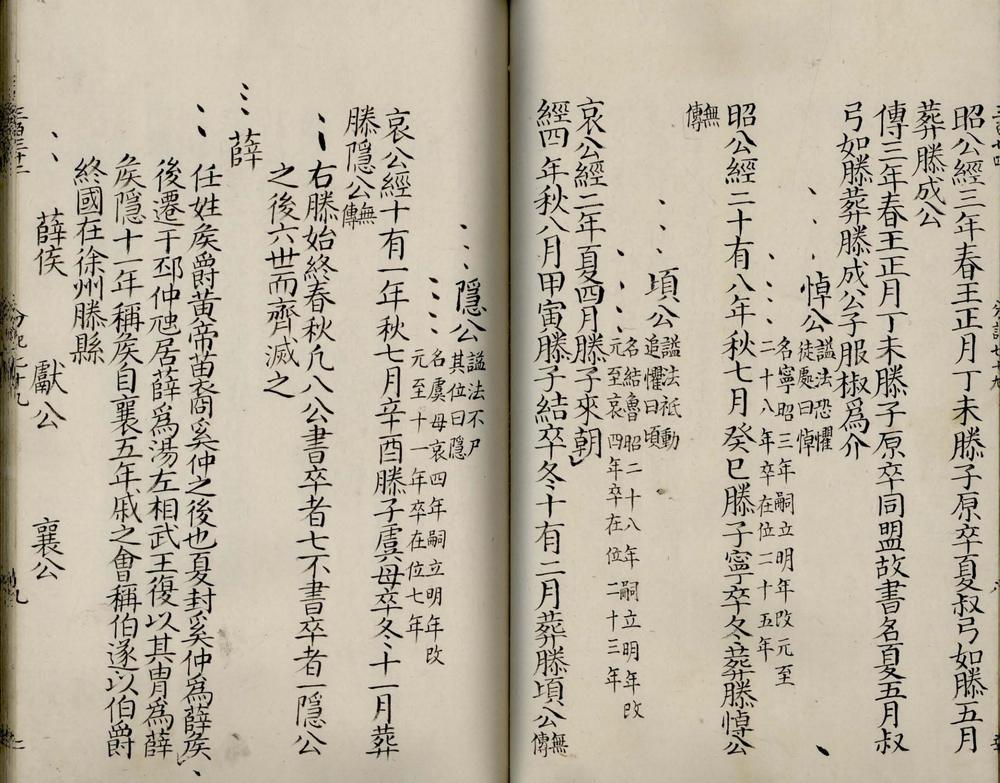 昭公經三年春王正月丁未滕子原卒夏叔弓如滕五月
葬滕成公
傳三年春王正月丁未滕子原卒同盟故書名夏五月叔
弓如滕葬滕成公子服椒爲介
悼公謚法恐懼徙處曰悼
名寧昭三年嗣立明年改元至二十八年卒在位二十五年
昭公經二十有八年秋七月癸巳滕子寧卒冬葬滕悼公
無傳
頃公謚法祗動追懼曰頃
名結魯昭二十八年嗣立明年改元至哀四年卒在位二十三年
哀公經二年夏四月滕子來朝
經四年秋八月甲寅滕子結卒冬十有二月葬滕頃公無傳
隱公謚法不尸其位曰隱
名虞母哀四年嗣立明年改元至十一年卒在位七年
哀公經十有一年秋七月辛酉滕子虞母卒冬十一月葬
滕隱公無傳
右滕始終春秋凡八公書卒者七不書卒者一隱公
之後六世而齊滅之
薛
任姓矦爵黄帝苗裔奚仲之後也夏封奚仲為薛矦
後遷于邳仲虺居薛爲湯左相武王復以其胄為薛
矦隱十一年稱矦自襄五年戚之會稱伯遂以伯爵
終國在徐州滕縣
薛侯 獻公 襄公